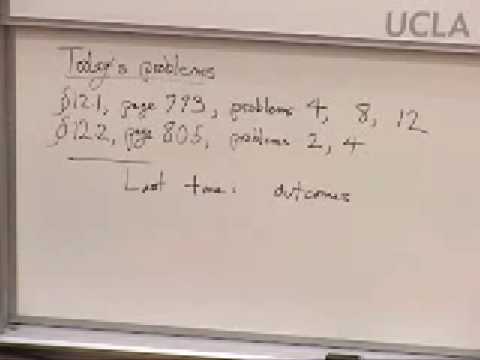 UCLA
Today's problems
§12.1, page 793, problems 4, 8, 12
§12.2, page 805, problems 2, 4
Last time: outcomes